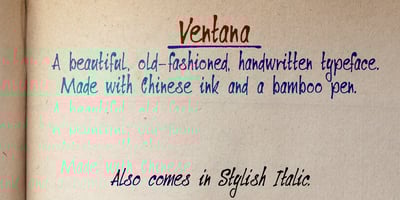 Ventana
A beautiful, old-fashioned, handwritten typeface.
Made with Chinese ink and a bamboo pen.
Also comes in Stylish Italic.